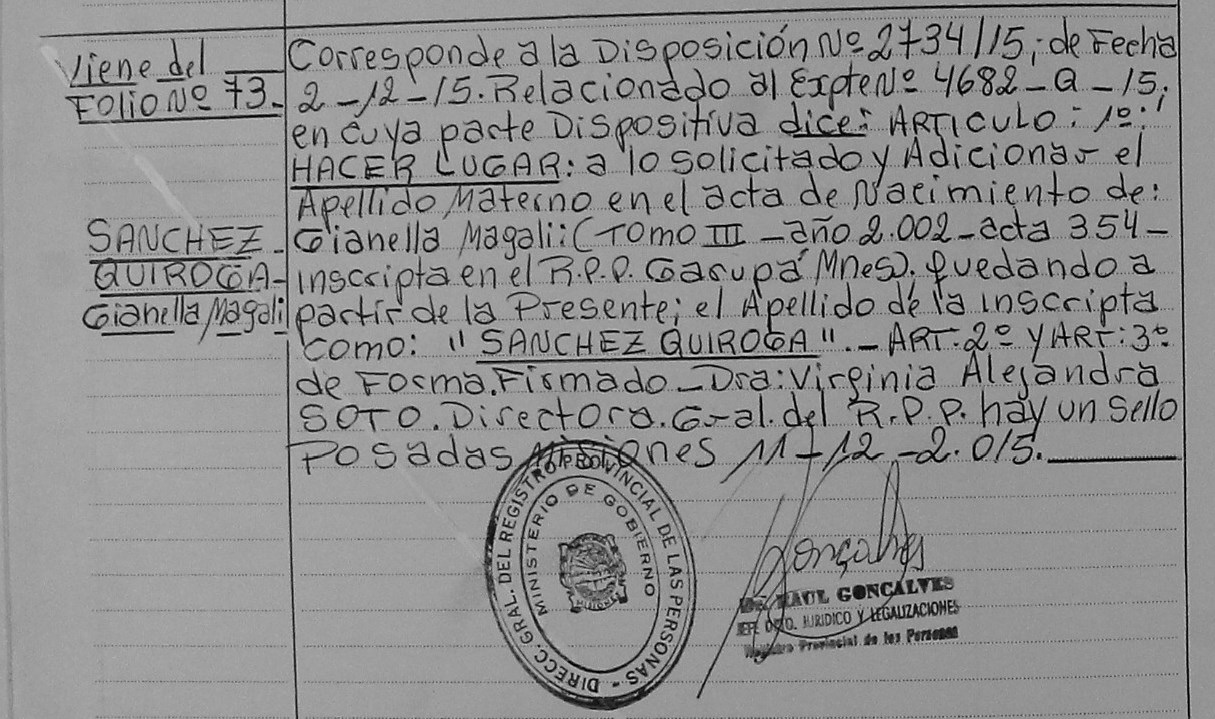 Viene del
Folio Nº 73.
SANCHEZ
QUIROGA
Gianella Magali
Corresponde a la Disposición Nº 2734/15; de Fecha
2-12-15. Relacionado al Expte Nº 4682-Q-15;
en cuya parte Dispositiva dice: ARTICULO: 1º:
HACER LUGAR: a lo solicitado y Adicionar el
Apellido Materno en el acta de Nacimiento de:
Gianella Magali: (Tomo III - año 2.002 - acta 354 -
inscripta en el R.P.P. Garupá Mnes). quedando a
partir de la Presente; el Apellido de la inscripta
como: "SANCHEZ QUIROGA". - ART: 2º y ART: 3º
de Forma. Firmado - Dra: Virginia Alejandra
SOTO. Directora. Gral. del R.P.P. hay un sello
Posadas Misiones 11-12-2.015.
DIRECC. GRAL. DEL REGISTRO PROVINCIAL DE LAS PERSONAS -
MINISTERIO DE GOBIERNO
Gonçalves
RAUL GONCALVES
JEFE DPTO. JURIDICO Y LEGALIZACIONES
Registro Provincial de las Personas